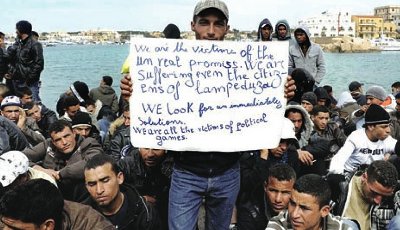 We are the victims of the
unreal promiss. We are
suffering even the citiz-
ens of lampeduza.
WE Look for an immediately
Solutions.
We are all the victims of political
games.